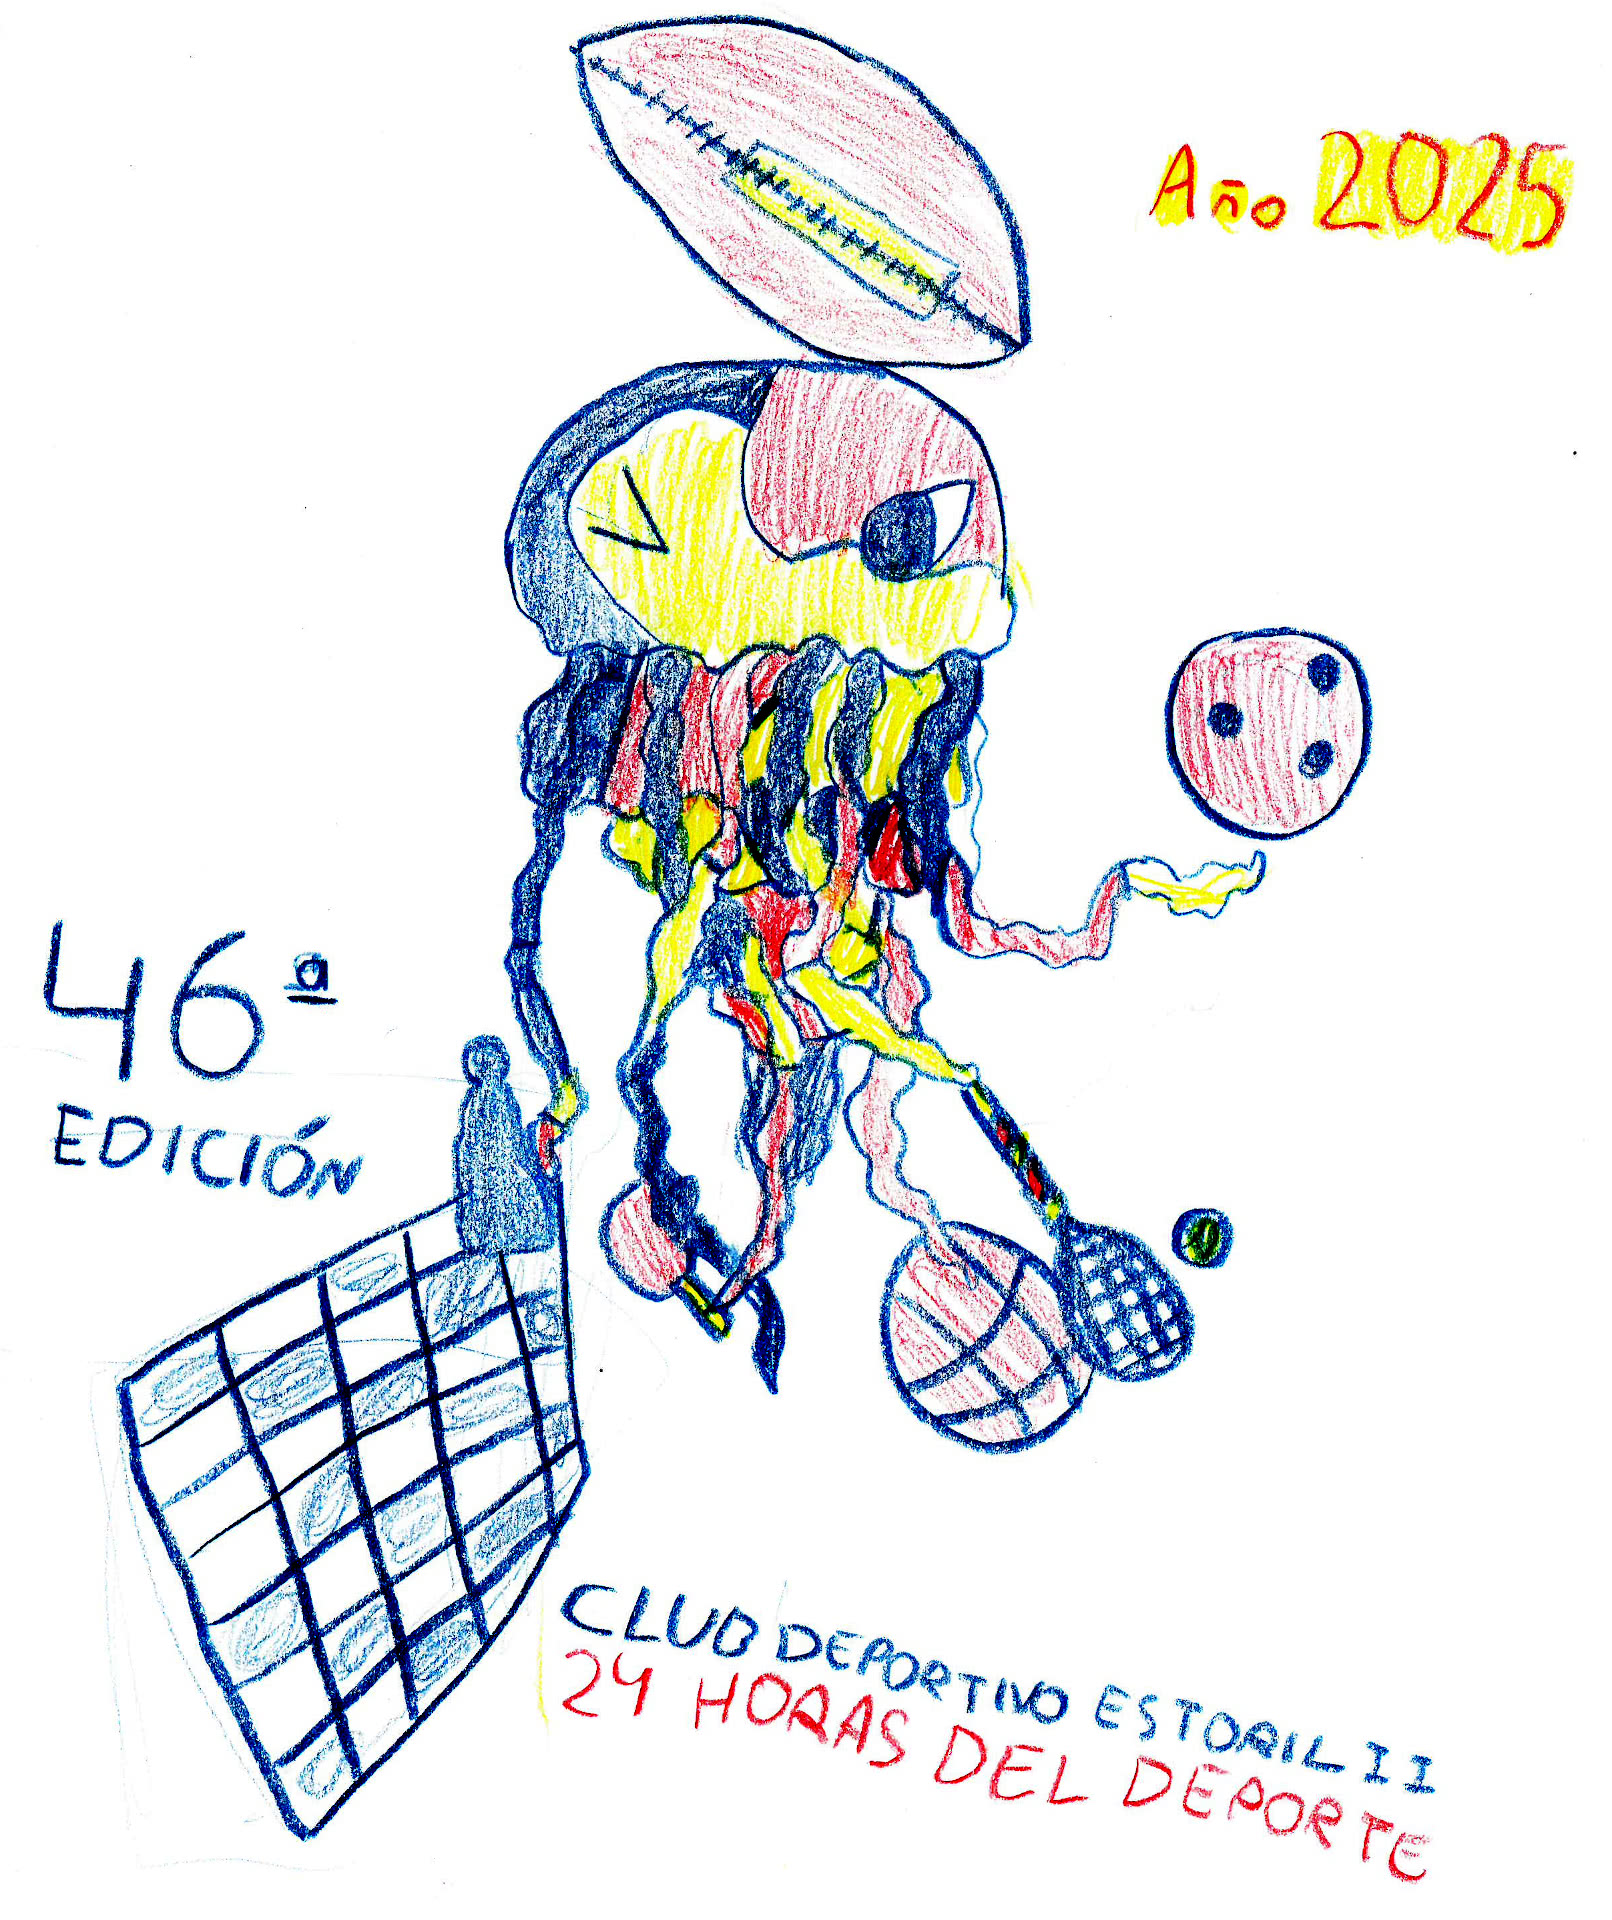 Año 2025
46ª
EDICIÓN
CLUB DEPORTIVO ESTORIL II
24 HORAS DEL DEPORTE